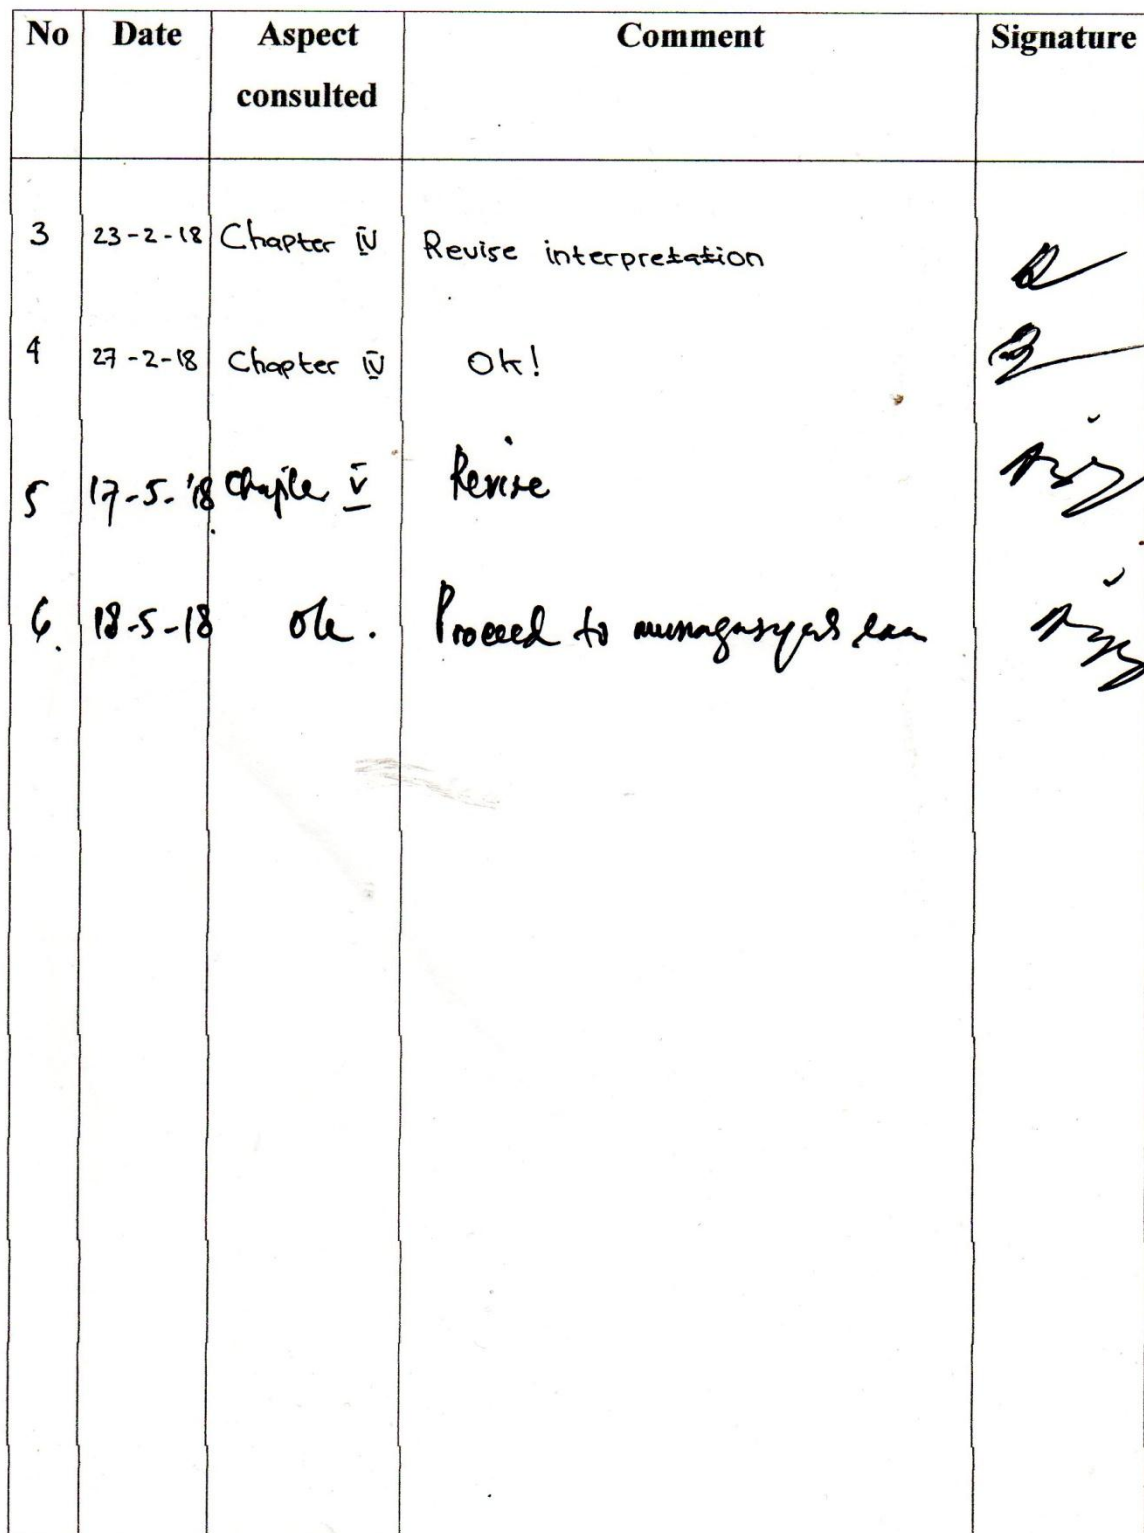 No Date Aspect consulted Comment Signature
3 23-2-18 Chapter IV Revise interpretation
4 27-2-18 Chapter IV Ok!
5 17-5-'18 Chapter V Revise
6. 18-5-18 Ok. Proceed to munaqasyah